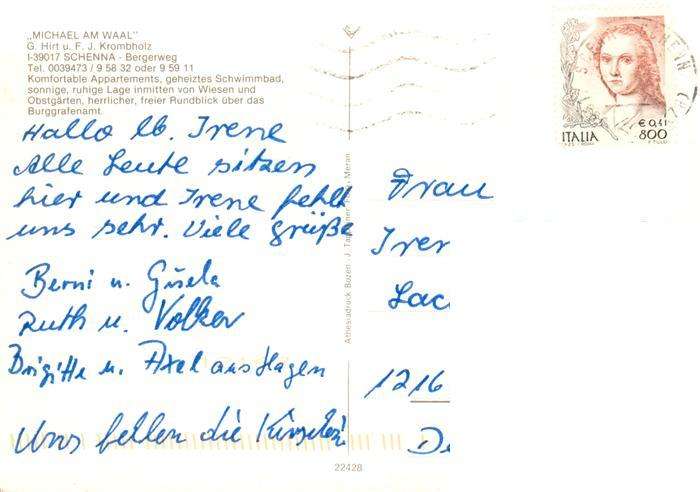 „MICHAEL AM WAAL"
G. Hirt u. F. J. Krombholz
I-39017 SCHENNA - Bergerweg
Tel. 0039473 / 9 58 32 oder 9 59 11
Komfortable Appartements, geheiztes Schwimmbad,
sonnige, ruhige Lage inmitten von Wiesen und
Obstgärten, herrlicher, freier Rundblick über das
Burggrafenamt.
Hallo lb. Irene
Alle Leute sitzen
hier und Irene fehlt
uns sehr. Viele grüße
Berni u. Gisela
Ruth u. Volker
Brigitte u. Axel aus Hagen
Uns fehlen die
22428
Athesiadruck Bozen - J.
Meran
ITALIA
€ 0,41
800
Frau
Irer
Lac
1216
De